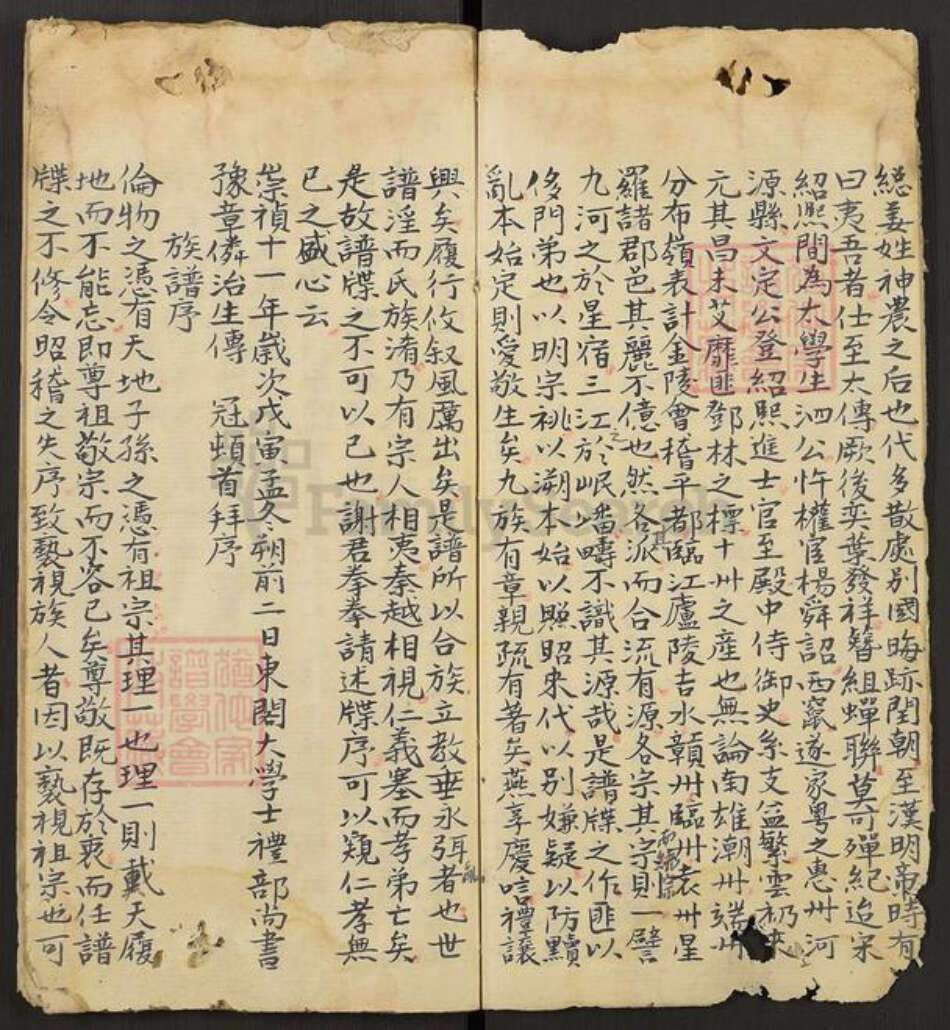 總姜姓神農之后也代多散處别國晦跡閏朝至漢明帝時有
曰夷吾者仕至太傳厥後奕葉發祥簪組蟬聯莫可殫紀迨宋
紹熙間為太學生泗公忤權宦楊舜詔西竄遂家粵之惠州河
源縣文定公登紹熙進士官至殿中侍御史系支益繁雲礽
元其昌未艾靡匪鄧林之標十卅之產也無論南雄潮卅端卅
分布嶺表計金陵會稽平都臨江廬陵吉水贛卅臨卅袁卅星
羅諸郡邑其麗不億也然各派而合流有源各宗其宗則一譬
九河之於星宿三江之於岷嶓疇不識其源哉是譜牒之作匪以
侈門弟也以明宗祧以溯本始以照昭來代以别嫌疑以防黷
亂本始定則愛敬生矣九族有章親疏有著矣燕享慶唁禮讓
興矣履行攸叙風厲出矣是譜所以合族立教垂永弭亂者也世
譜淫而氏族淆乃有宗人相夷秦越相視仁義塞而孝弟亡矣
是故譜牒之不可以已也謝君拳拳請述牒序可以窺仁孝無
已之盛心云
崇禎十一年歲次戊寅孟冬朔前二日東閣大學士禮部尚書
豫章僯治生傳 冠頓首拜序
族譜序
倫物之憑有天地子孫之憑有祖宗其理一也理一則戴天履
地而不能忘即尊祖敬宗而不容已矣尊敬既存於衷而任譜
牒之不修令昭稽之失序致褻視族人者因以褻視祖宗也可
FamilySearch